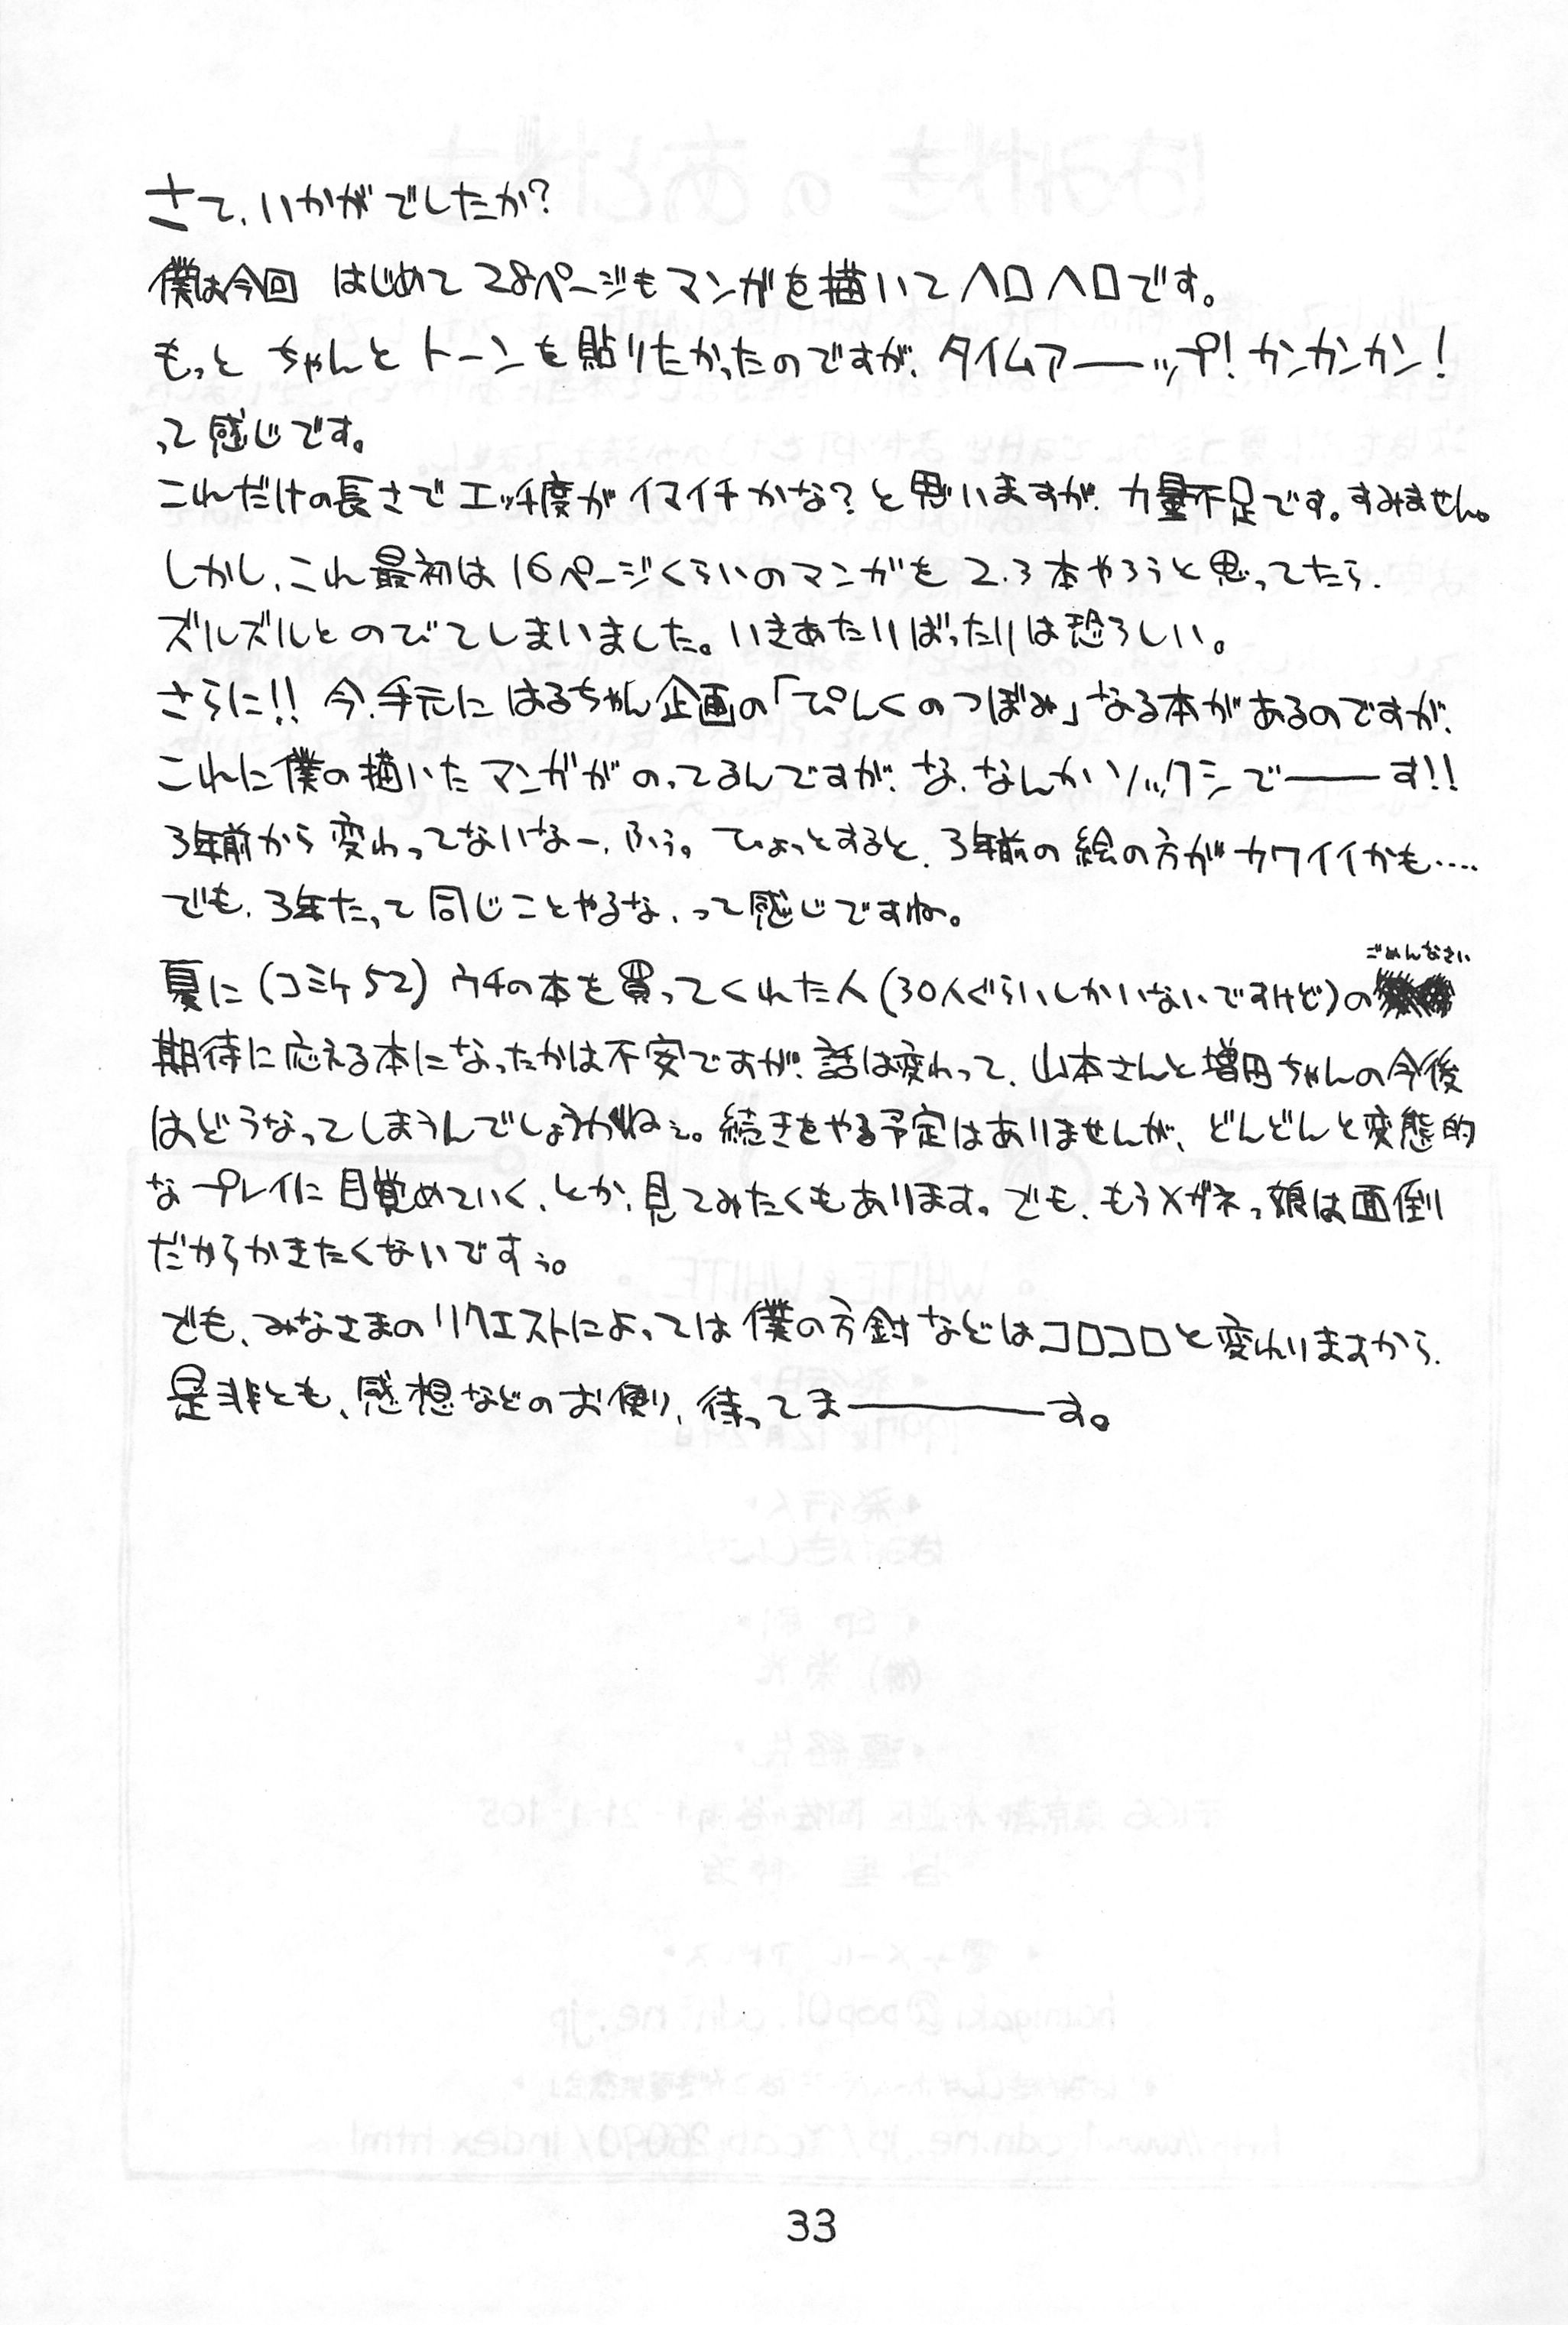 さて、いかがでしたか?
僕は今回 はじめて28ページもマンガを描いてヘロヘロです。
もっと ちゃんとトーンを貼りたかったのですが、タイムアーーップ!カンカンカン!
って感じです。
これだけの長さでエッチ度がイマイチかな?と思いますが、力量不足です。すみません。
しかし、これ最初は16ページくらいのマンガを2.3本やろうと思ってたら、
ズルズルとのびてしまいました。いきあたりばったりは恐ろしい。
さらに!! 今、手元にはるちゃん企画の「ぴんくのつぼみ」なる本があるのですが、
これに僕の描いたマンガがのってるんですが、な、なんかソックシで――す!!
3年前から変わってないなー、ふぅ。ひょっとすると、3年前の絵の方がカワイイかも‥‥
でも、3年たって同じことやるな、って感じですね。
ごめんなさい
夏に(コミケ52)ウチの本を買ってくれた人(30人ぐらいしかいないですけど)の
期待に応える本になったかは不安ですが、話は変わって、山本さんと増田ちゃんの今後
はどうなってしまうんでしょうかねぇ。続きをやる予定はありませんが、どんどんと変態的
なプレイに目覚めていく、とか、見てみたくもあります。でも、もうメガネっ娘は面倒
だからかきたくないですぅ。
でも、みなさまのリクエストによっては僕の方針などはコロコロと変わりますから、
是非とも、感想などのお便り、待ってま――――す。
33